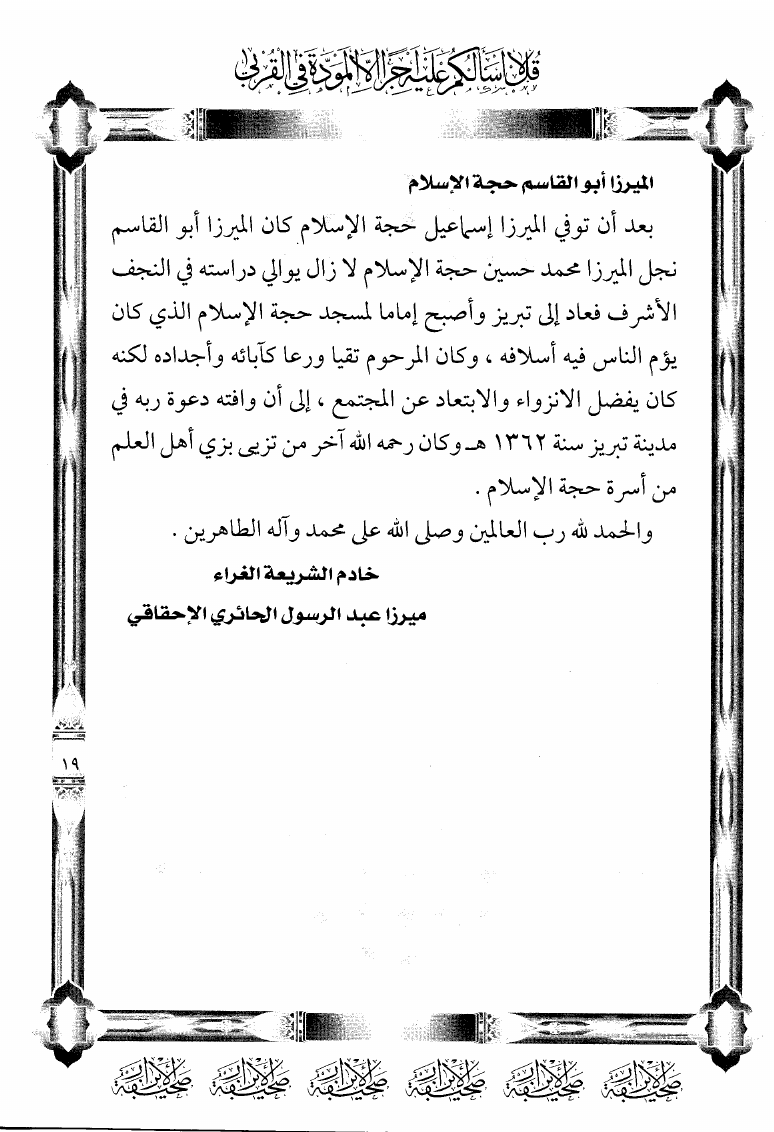 قل لا أسألكم عليه أجرا إلا المودة في القربى
الميرزا أبو القاسم حجة الإسلام
بعد أن توفي الميرزا إسماعيل حجة الإسلام كان الميرزا أبو القاسم
نجل الميرزا محمد حسين حجة الإسلام لا زال يوالي دراسته في النجف
الأشرف فعاد إلى تبريز وأصبح إماما لمسجد حجة الإسلام الذي كان
يؤم الناس فيه أسلافه ، وكان المرحوم تقيا ورعا كآبائه وأجداده لكنه
كان يفضل الانزواء والابتعاد عن المجتمع ، إلى أن وافته دعوة ربه في
مدينة تبريز سنة ١٣٦٢ هـ وكان رحمه الله آخر من تزيى بزي أهل العلم
من أسرة حجة الإسلام .
والحمد لله رب العالمين وصلى الله على محمد وآله الطاهرين .
خادم الشريعة الغراء
ميرزا عبد الرسول الحائري الإحقاقي
١٩
صحيفة الأبرار صحيفة الأبرار صحيفة الأبرار صحيفة الأبرار صحيفة الأبرار صحيفة الأبرار